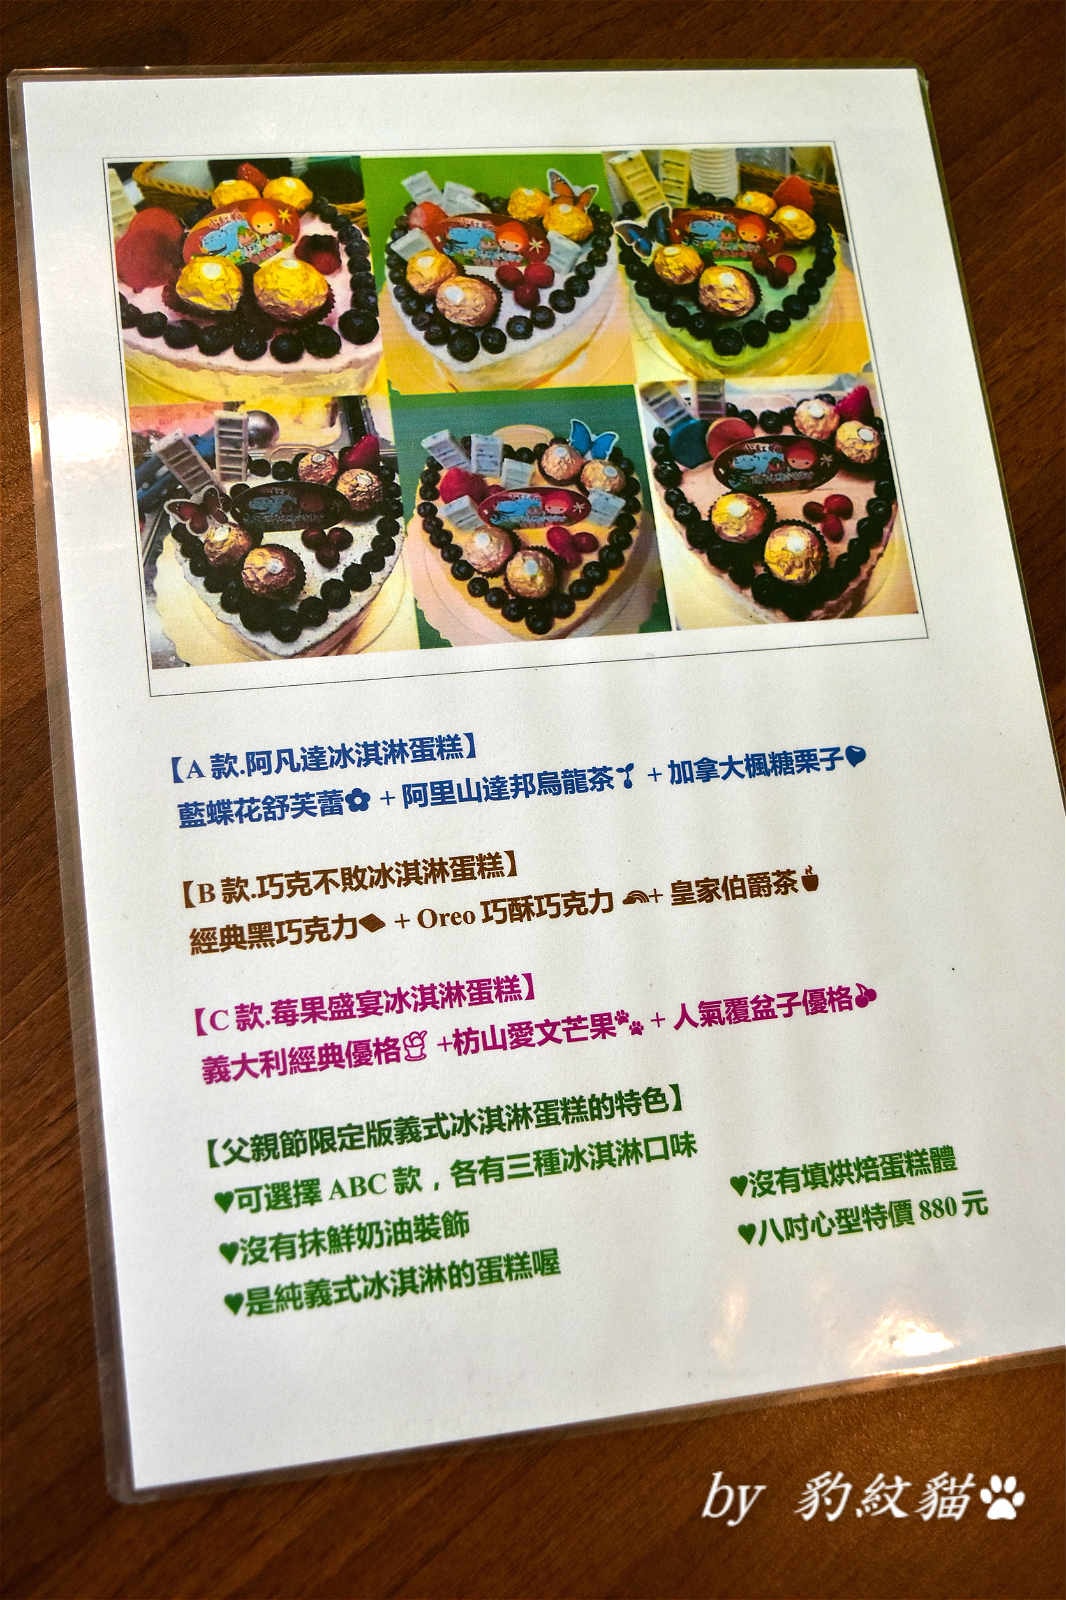 【A 款.阿凡達冰淇淋蛋糕】
藍蝶花舒芙蕾✿ + 阿里山達邦烏龍茶🌱 + 加拿大楓糖栗子
【B 款.巧克不敗冰淇淋蛋糕】
經典黑巧克力 + Oreo 巧酥巧克力 + 皇家伯爵茶
【C 款.莓果盛宴冰淇淋蛋糕】
義大利經典優格 +枋山愛文芒果🐾 + 人氣覆盆子優格🍒
【父親節限定版義式冰淇淋蛋糕的特色】
♥可選擇 ABC 款，各有三種冰淇淋口味
♥沒有抹鮮奶油裝飾
♥是純義式冰淇淋的蛋糕喔
♥沒有填烘焙蛋糕體
♥八吋心型特價 880 元
by 豹紋貓🐾